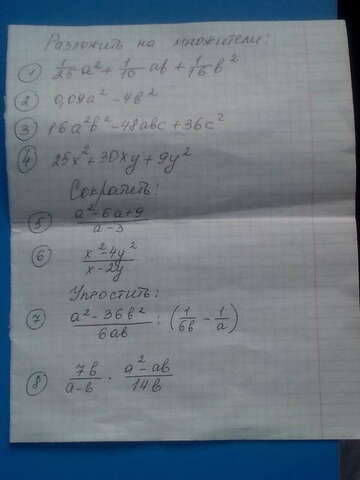 Разложить на множители:
① 1/25 a² + 1/10 ab + 1/16 b²
② 0,09a² - 4b²
③ 16a²b² - 48abc + 36c²
④ 25x² + 30xy + 9y²
Сократить:
⑤ (a² - 6a + 9)/(a - 3)
⑥ (x² - 4y²)/(x - 2y)
Упростить:
⑦ (a² - 36b²)/(6ab) : (1/(6b) - 1/a)
⑧ 7b/(a - b) · (a² - ab)/(14b)